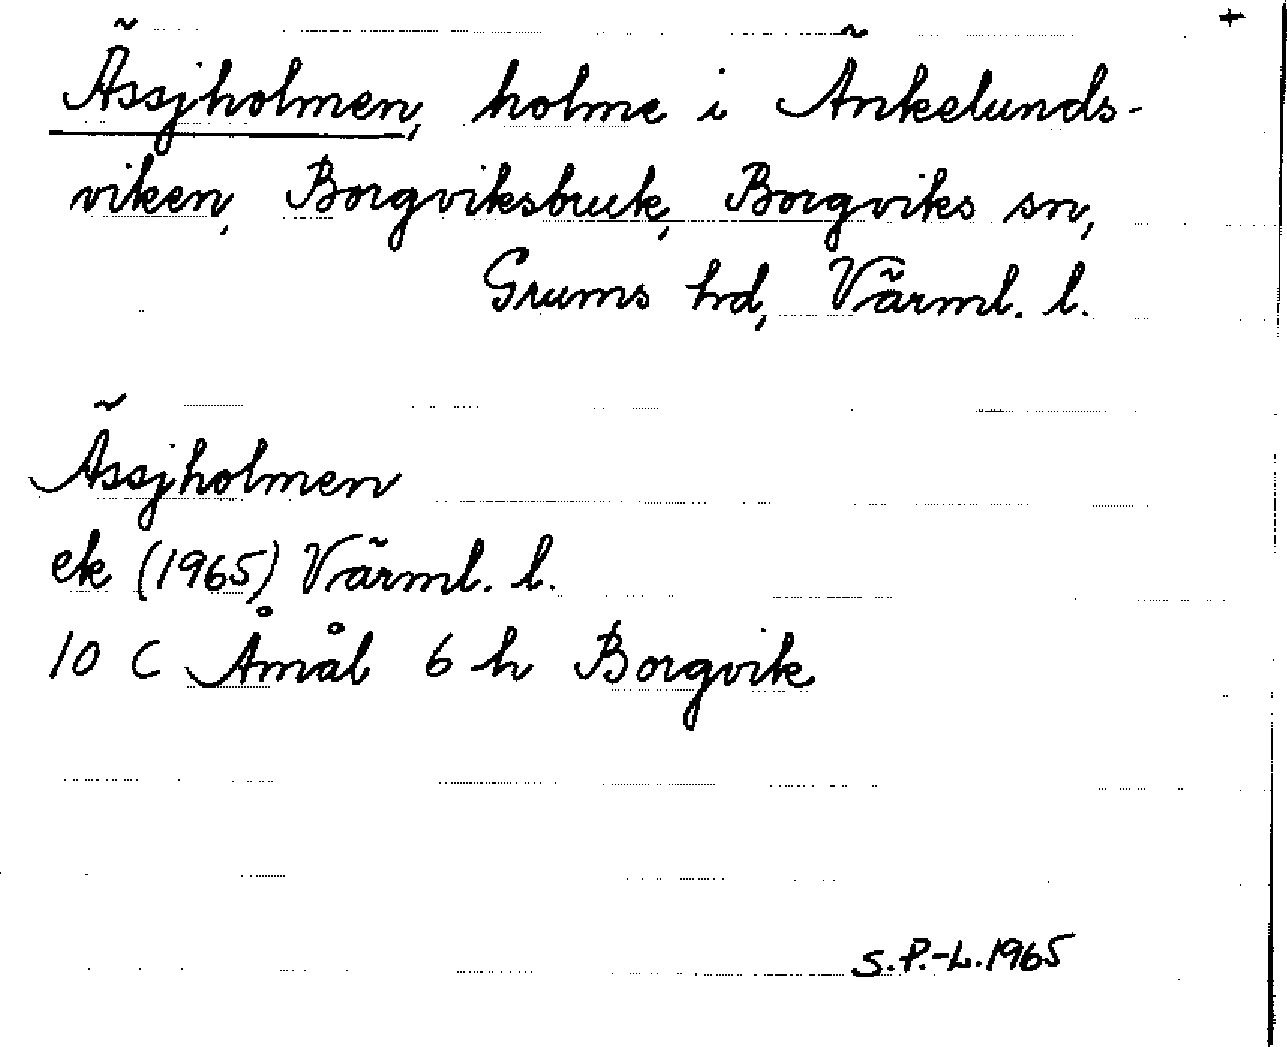 +
Ässjholmen, holme i Änkelunds-
viken, Borgviksbruk, Borgviks sn,
Grums hd, Värml. l.
Ässjholmen
ek (1965) Värml. l.
10 C Åmål 6 h Borgvik
S.P.-L. 1965